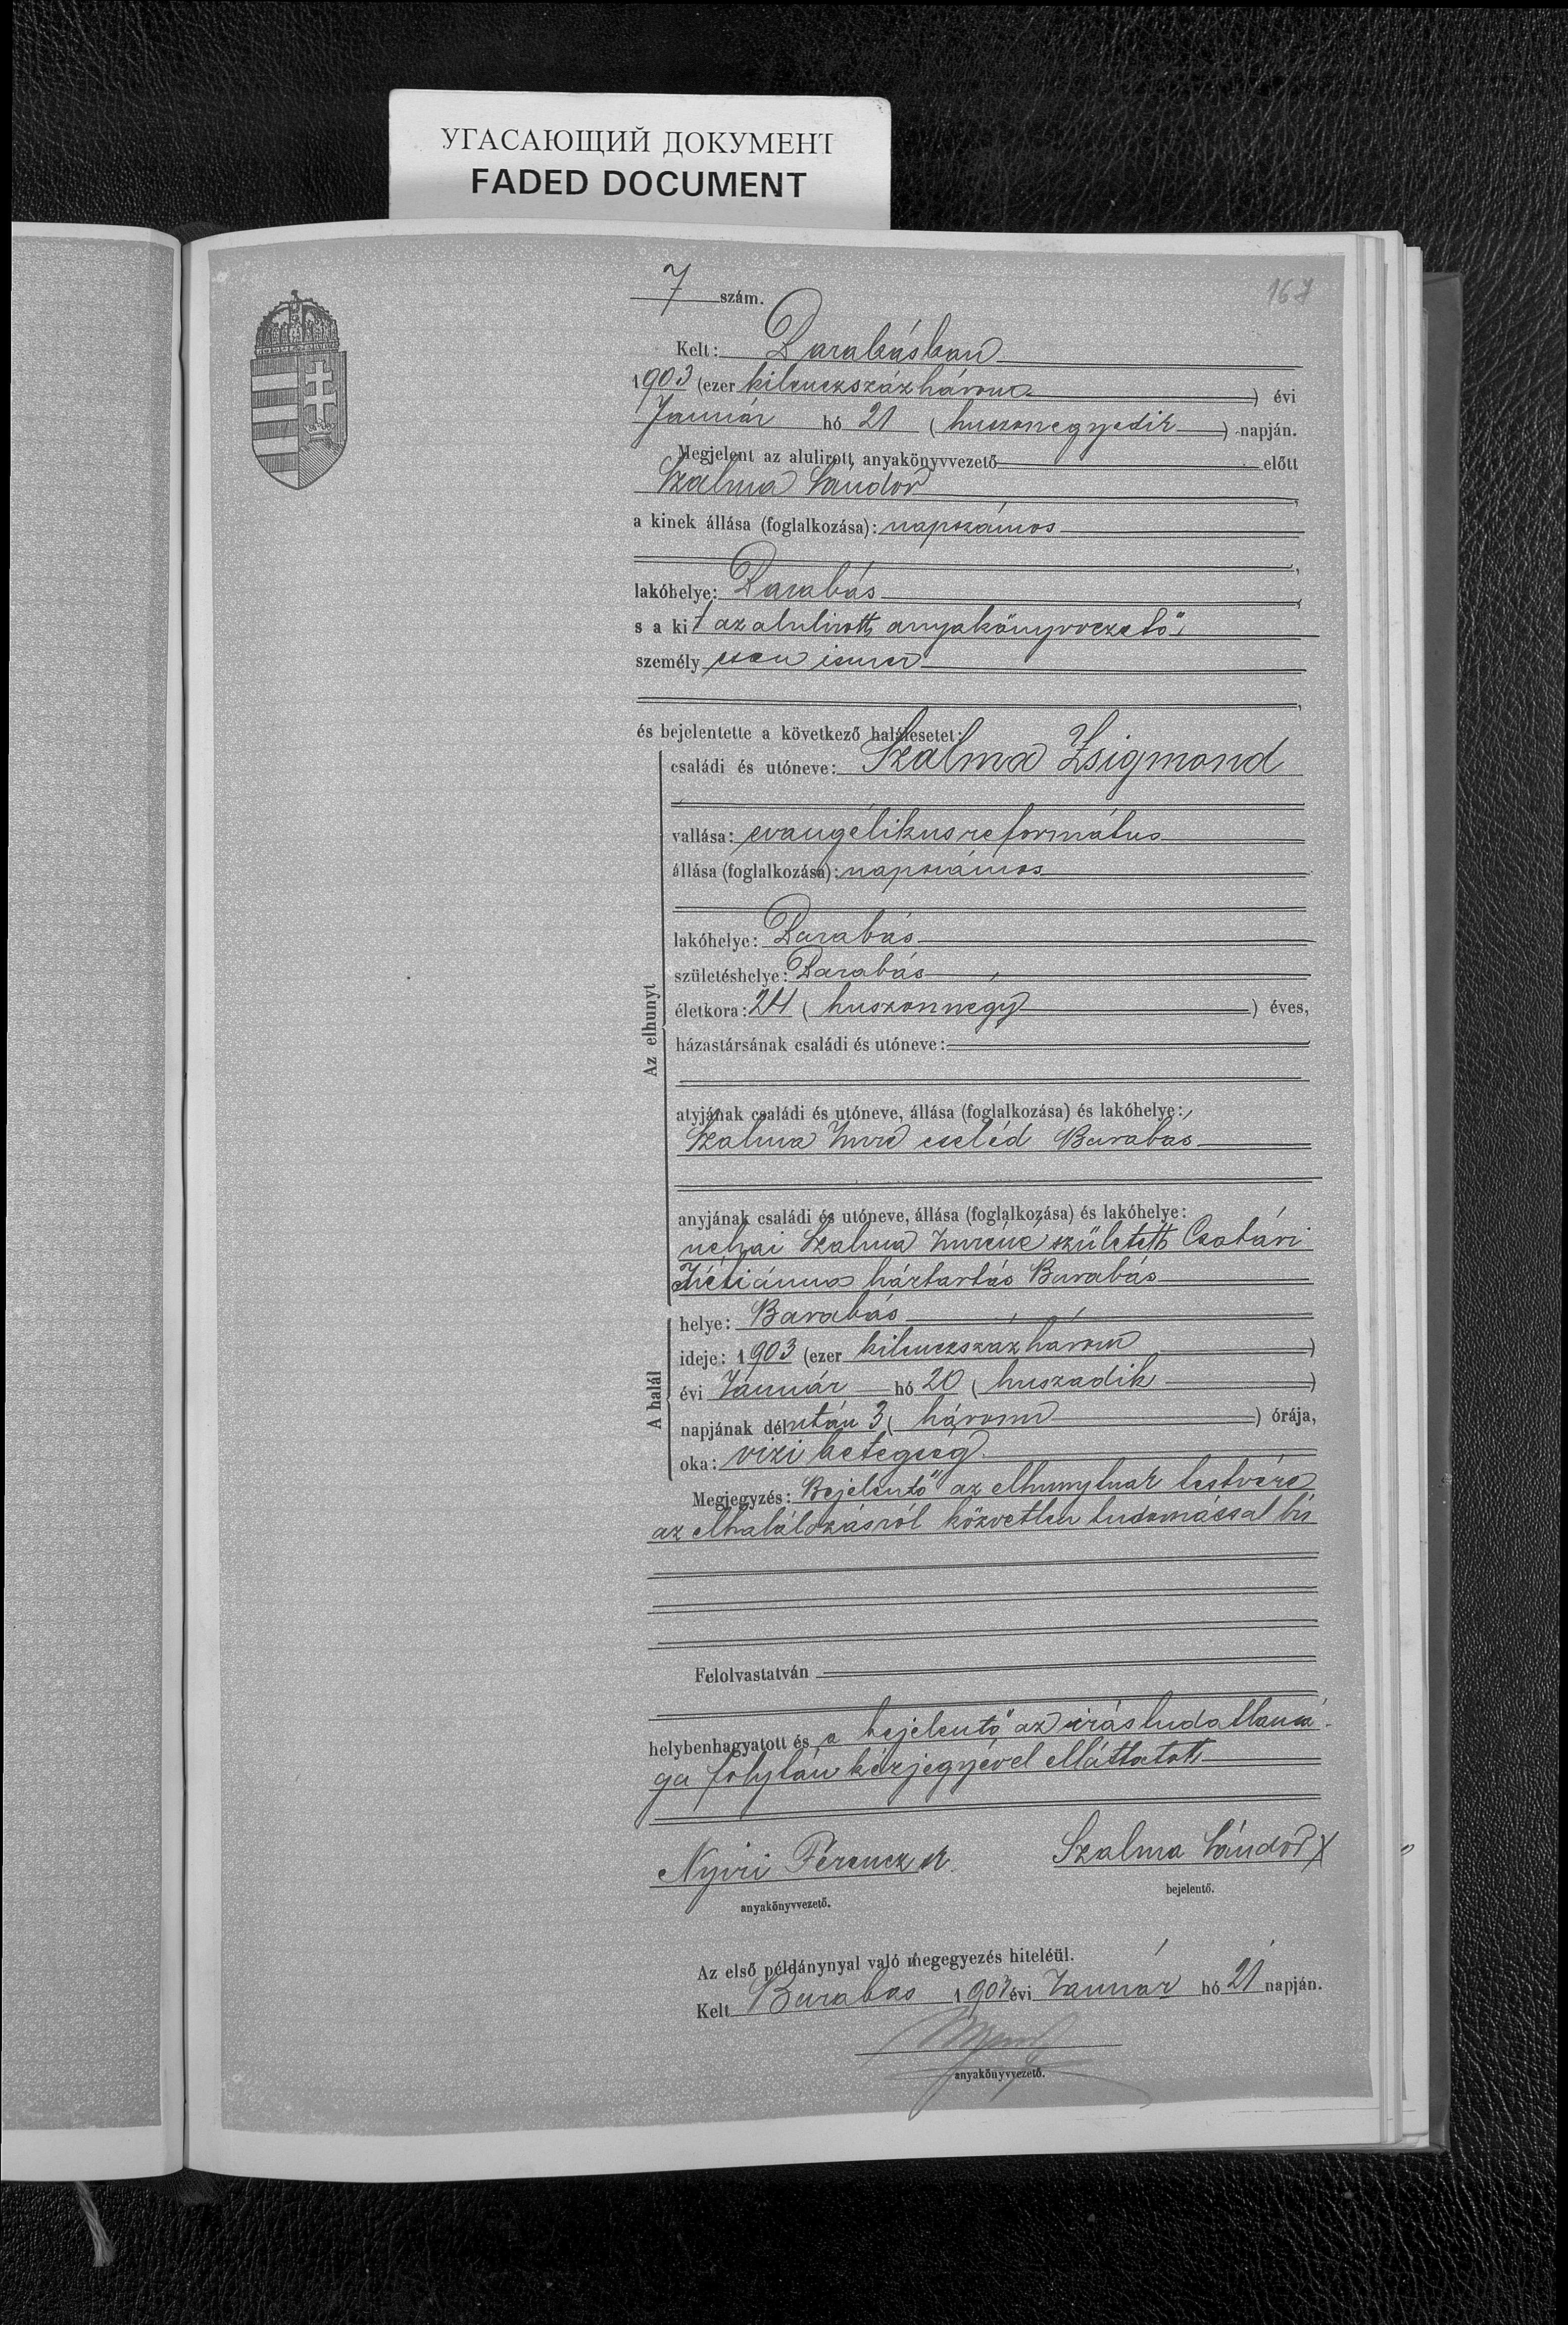 УГАСАЮЩИЙ ДОКУМЕНТ
FADED DOCUMENT
167
7 szám.
Kelt: Barabásban
1903 (ezer kilenczszázhárom) évi
Január hó 21 (huszonegyedik) napján.
Megjelent az alulirott anyakönyvvezető előtt
Szalma Sándor,
a kinek állása (foglalkozása): napszámos
lakóhelye: Barabás,
s a kit az alulirott anyakönyvvezető
személyesen ismer
és bejelentette a következő halálesetet:
Az elhunyt
családi és utóneve: Szalma Zsigmond
vallása: evangélikus református
állása (foglalkozása): napszámos
lakóhelye: Barabás
születéshelye: Barabás
életkora: 24 (huszonnégy) éves,
házastársának családi és utóneve:
atyjának családi és utóneve, állása (foglalkozása) és lakóhelye:
Szalma Imre cseléd Barabás
anyjának családi és utóneve, állása (foglalkozása) és lakóhelye:
néhai Szalma Imréné született Csatári
háztartás Barabás
A halál
helye: Barabás
ideje: 1903 (ezer kilenczszázhárom)
évi Január hó 20 (huszadik)
napjának délután 3 (három) órája,
oka: vizi betegség
Megjegyzés: Bejelentő az elhunytnak testvére
az elhalálozásról közvetlen tudomással bir
Felolvastatván
helybenhagyatott és a bejelentő az irástudatlansá-
ga folytán kézjegyével elláttatott
Nyiri Ferencz
anyakönyvvezető.
Szalma Sándor X
bejelentő.
Az első példánynyal való megegyezés hiteléül.
Kelt Barabás 1903 évi Január hó 21 napján.
anyakönyvvezető.